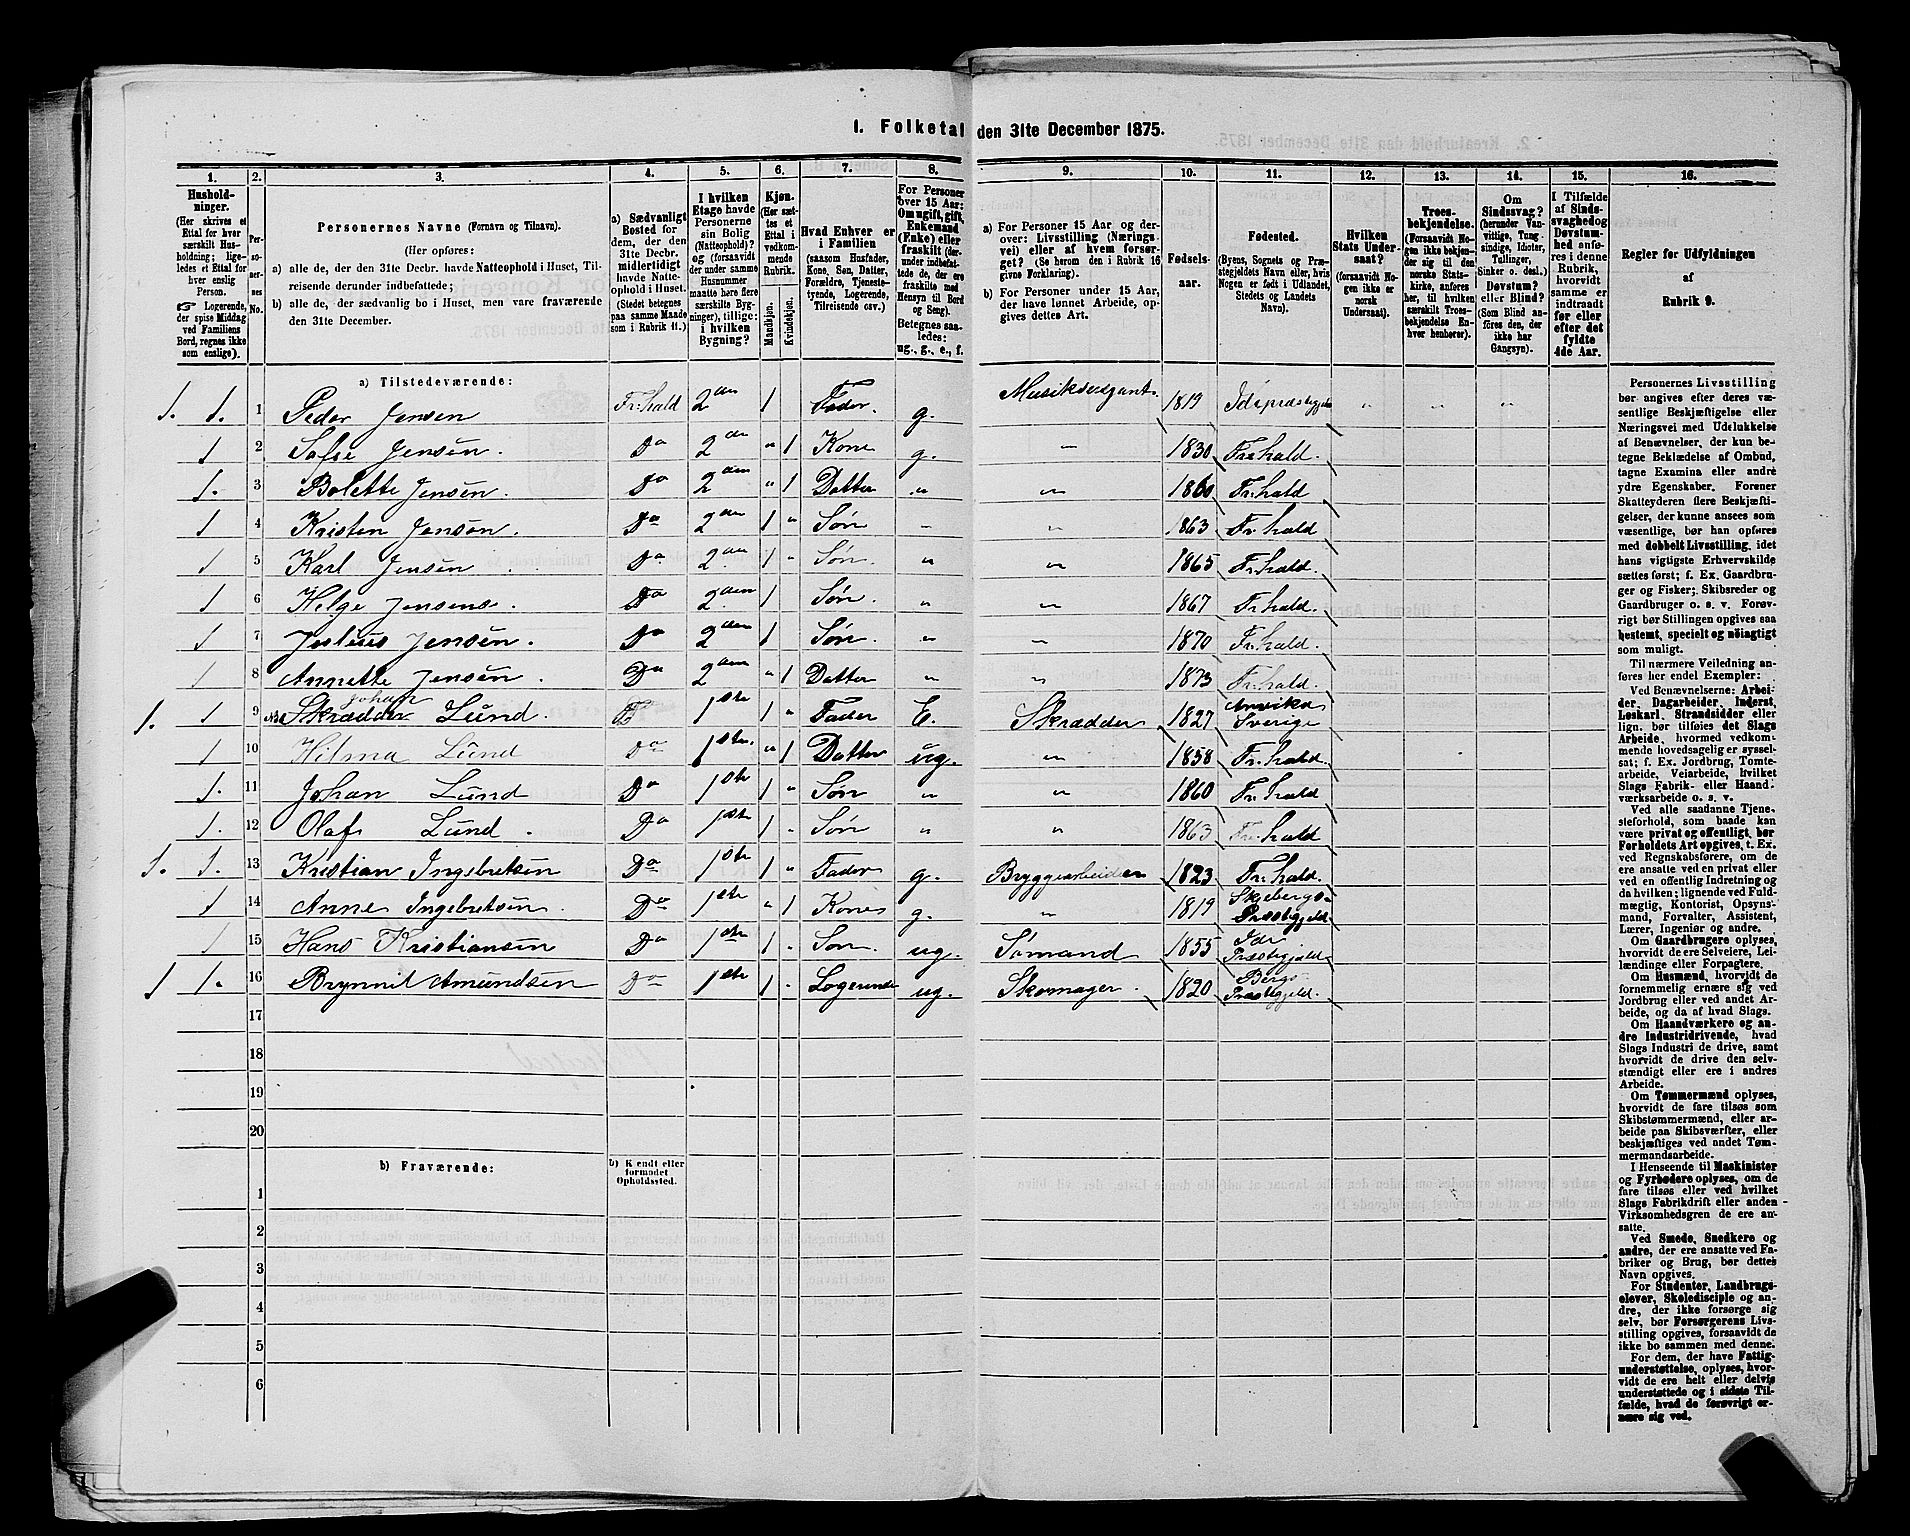 1. Folketal den 31te December 1875.
1. 2. 3. 4. 5. 6. 7. 8. 9. 10. 11. 12. 13. 14. 15. 16.
Husholdninger.
(Her skrives et
Ettal for hver
særskilt Husholdning;
ligeledes et Ettal for
hver enslig
Person.
☞ Logerende,
der spise Middag
ved Familiens
Bord, regnes ikke
som enslige).
Personernes No.
Personernes Navne (Fornavn og Tilnavn).
(Her opføres:
a) alle de, der den 31te Decbr. havde Natteophold i Huset, Tilreisende derunder indbefattede;
b) alle de, der sædvanlig bo i Huset, men vare fraværende
den 31te December.
a) Sædvanligt
Bosted for
dem, der den
31te Decbr.
midlertidigt
havde Natteophold i Huset.
(Stedet betegnes
paa samme Maade
som i Rubrik 11.)
I hvilken
Etage havde
Personerne
sin Bolig
(Natteophold)?
og (forsaavidt
der under samme
Husnummer
maatte høre flere
særskilte Bygninger), tillige:
i hvilken
Bygning?
Kjøn.
(Her sættes et
Ettal i
vedkommende
Rubrik.
Mandkjøn.
Kvindekjøn.
Hvad Enhver er
i Familien
(saasom Husfader,
Kone, Søn, Datter,
Forældre, Tjenestetyende, Logerende,
Tilreisende osv.)
For Personer
over 15 Aar:
Om ugift, gift,
Enkemand
(Enke) eller
fraskilt (derunder indbefattede de, der ere
fraskilte med
Hensyn til Bord
og Seng).
Betegnes saaledes:
ug., g., e., f.
a) For Personer 15 Aar og derover: Livsstilling (Næringsvei) eller af hvem forsørget? (Se herom den i Rubrik 16
givne Forklaring.)
b) For Personer under 15 Aar,
der have lønnet Arbeide, opgives dettes Art.
Fødselsaar.
Fødested.
(Byens, Sognets og Præstegjeldets Navn eller, hvis
Nogen er født i Udlandet,
Stedets og Landets
Navn).
Hvilken
Stats Undersaat?
(forsaavidt Nogen ikke er
norsk
Undersaat).
Troesbekjendelse.
(Forsaavidt Nogen ikke bekjender sig til den
norske Statskirke, anføres
her, til hvilken
særskilt Troesbekjendelse Enhver henhører).
Om
Sindssvag?
(herunder Vanvittige, Tungsindige, Idioter,
Tullinger,
Sinker o. desl.)
Døvstum?
eller Blind?
(Som Blind anføres den, der
ikke har
Gangsyn).
I Tilfælde
af Sindssvaghed og
Døvstumhed anføres i denne
Rubrik,
hvorvidt
samme er
indtraadt
før eller
efter det
fyldte
4de Aar.
Regler for Udfyldningen
af
Rubrik 9.
a) Tilstedeværende:
1. 1. 1 Peder Jensen Fr:hald 2den 1 Fader. g. Musikusgant. 1819 Idspræstegjeld " " "
1 2 Sofie Jensen. Do 2den " 1 Kone g. " 1830 Fr:hald.
1. 3 Bolette Jensen. Do 2den " 1 Datter " " 1860 Fr:hald
1 4 Kristen Jensen. Do 2den 1 " Søn " " 1863 Fr:hald
1 5 Karl Jensen Do. 2den. 1 " Søn. " " 1865 Fr:hald.
1 6 Helge Jensens. Do 2den 1 Søn. " " 1867 Fr:hald.
1 7 Justius Jensen. Do 2den 1 Søn. " " 1870 Fr:hald.
1 8 Annette Jensen. Do 2den " 1 Datter " " 1873 Fr:hald.
1. 1 9 Skrædder Johan Lund. 1ste 1 " Fader E. Skrædder 1827 Arvika Sverige
1 10 Hilma Lund Do 1ste. " 1 Datter ug. " 1858 Fr:hald.
1. 11 Johan Lund Do 1ste 1 " Søn " " 1860 Fr:hald
1. 12 Olaf Lund. Do 1ste 1 . Søn. " " 1863 Fr:hald
1. 1. 13 Kristian Ingebretsen Do 1ste 1 " Fader g. Bryggearbeider 1823 Fr:hald.
1 14 Anne Ingebretsen. Do 1ste " 1 Kone g. " 1819 Skebergs Præstegjeld.
1 15 Hans Kristiansen Do 1ste 1 . Søn. ug. Sømand 1855 Ide Præstegjeld
1 1. 16 Brynnil Amundsen Do 1ste 1 . Logerende ug. Skomager. 1820 Bergs Præstegjeld.
17
18
19
20
b) Fraværende:
b) Kjendt eller
formodet
Opholdssted.
1
2
3
4
5
6
Personernes Livsstilling
bør angives efter deres væsentlige Beskjæftigelse eller
Næringsvei med Udelukkelse
af Benævnelser, der kun betegne Beklædelse af Ombud,
tagne Examina eller andre
ydre Egenskaber. Forener
Skatteyderen flere Beskjæftigelser, der kunne ansees som
væsentlige, bør han opføres
med dobbelt Livsstilling, idet
hans vigtigste Erhvervskilde
sættes først; f. Ex. Gaardbruger og Fisker; Skibsreder og
Gaardbruger o. s. v. Forøvrigt bør Stillingen opgives saa
bestemt, specielt og nöiagtigt
som muligt.
Til nærmere Veiledning anføres her endel Exempler:
Ved Benævnelserne: Arbeider, Dagarbeider, Inderst,
Løskarl, Strandsidder eller
lign. bør tilføies det Slags
Arbeide, hvormed vedkommende hovedsagelig er sysselsat; f. Ex. Jordbrug, Tomtearbeide, Veiarbeide, hvilket
Slags Fabrik- eller Haandværksarbeide o. s. v.
Ved alle saadanne Tjenesteforhold, som baade kan
være privat og offentligt, bør
Forholdets Art opgives, t. Ex.
ved Regnskabsførere, om de
ere ansatte ved en privat eller
ved en offentlig Indretning og
da hvilken; lignende ved Fuldmægtig, Kontorist, Opsynsmand, Forvalter, Assistent,
Lærer, Ingeniør og andre.
Om Gaardbrugere oplyses,
hvorvidt de ere Selveiere, Leilændinge eller Forpagtere.
Om Husmænd, hvorvidt de
fornemmelig ernære sig ved
Jordbrug eller ved andet Arbeide, og da af hvad Slags.
Om Haandværkere og andre Industridrivende, hvad
Slags Industri de drive, samt
hvorvidt de drive den selvstændigt eller ere i andres
Arbeide.
Om Tømmermænd oplyses,
hvorvidt de fare tilsøs som
Skibstømmermænd, eller arbeide paa Skibsværfter, eller
beskjæftiges ved andet Tømmermandsarbeide.
I Henseende til Maskinister
og Fyrbødere oplyses, om de
fare tilsøs eller ved hvilket
Slags Fabrikdrift eller anden
Virksomhedsgren de ere ansatte.
Ved Smede, Snedkere og
andre, der ere ansatte ved Fabriker og Brug, bør dettes
Navn opgives.
For Studenter, Landbrugselever, Skoledisciple og andre, der ikke forsørge sig
selv, bør Forsørgerens Livsstilling opgives, forsaavidt de
ikke bo sammen med denne.
For dem, der have Fattigunderstøttelse, oplyses, hvorvidt de ere helt eller delvis
understøttede og i sidste Tilfælde, hvad de forøvrigt ernære sig ved.